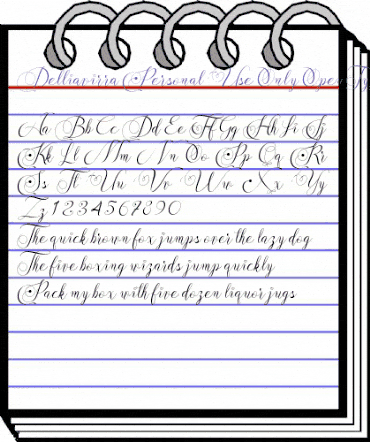 Delliavirra Personal Use Only Open Ty
Aa Bb Cc Dd Ee Ff Gg Hh Ii Jj
Kk Ll Mm Nn Oo Pp Qq Rr
Ss Tt Uu Vv Ww Xx Yy
Zz 1234567890
The quick brown fox jumps over the lazy dog
The five boxing wizards jump quickly
Pack my box with five dozen liquor jugs